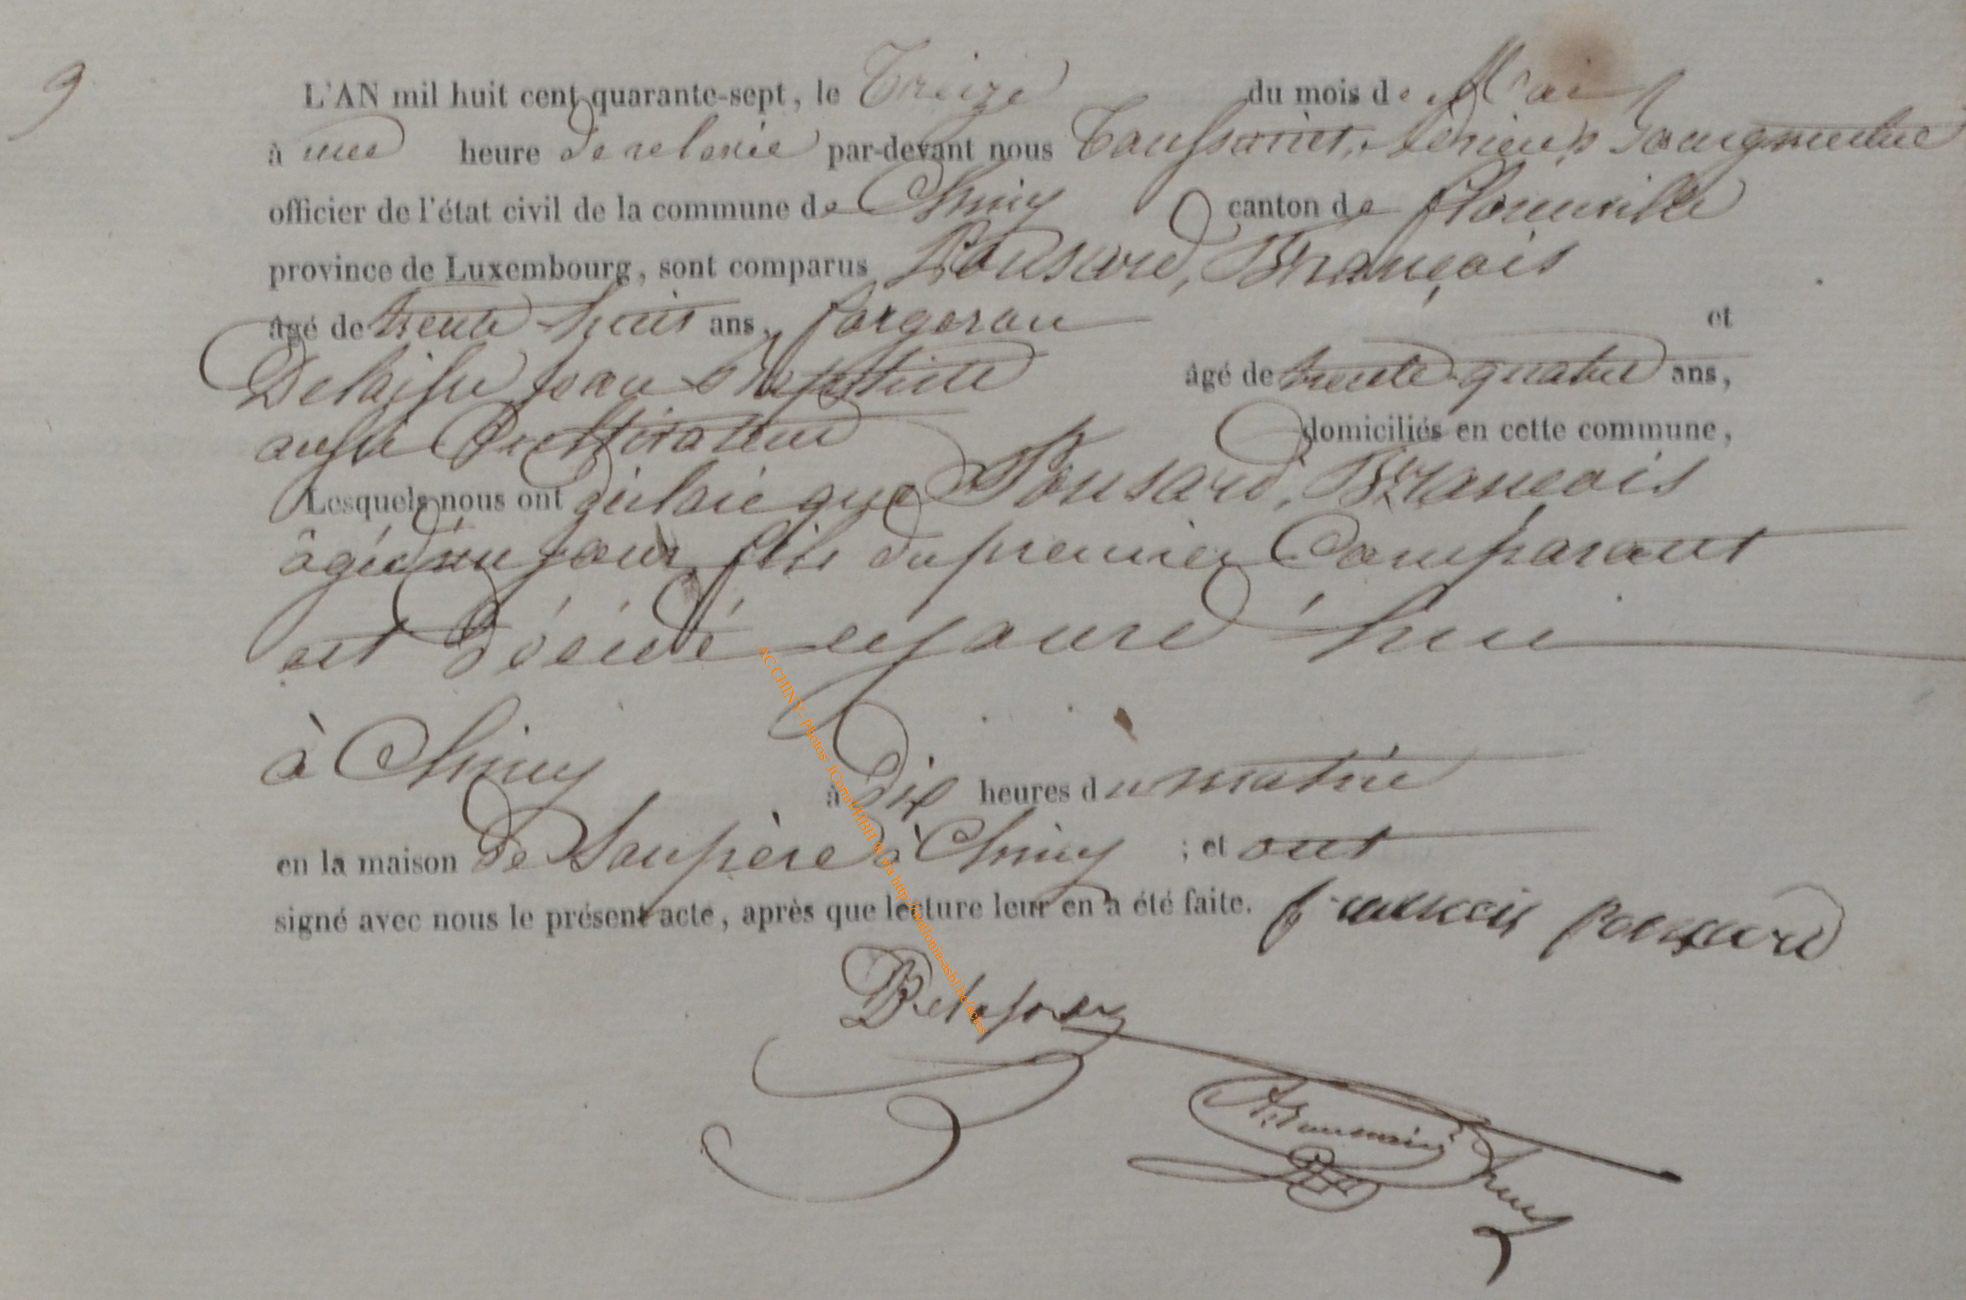 9
L'AN mil huit cent quarante-sept, le Treize du mois de Mai
à une heure de relevée par-devant nous Toussaint, Bourgmestre
officier de l'état civil de la commune de Chiny canton de florenville
province de Luxembourg, sont comparus Ponsard, François
âgé de trente huit ans, forgeron et
Delaisse Jean Baptiste âgé de trente-quatre ans,
aussi Cultivateur domiciliés en cette commune,
Lesquels nous ont déclaré que Ponsard, François
âgé d'un jour, fils du premier Comparant
est décédé cejourd'hui
à Chiny à dix heures du matin
en la maison de Son père à Chiny ; et ont
signé avec nous le présent acte, après que lecture leur en a été faite. francois Ponsard